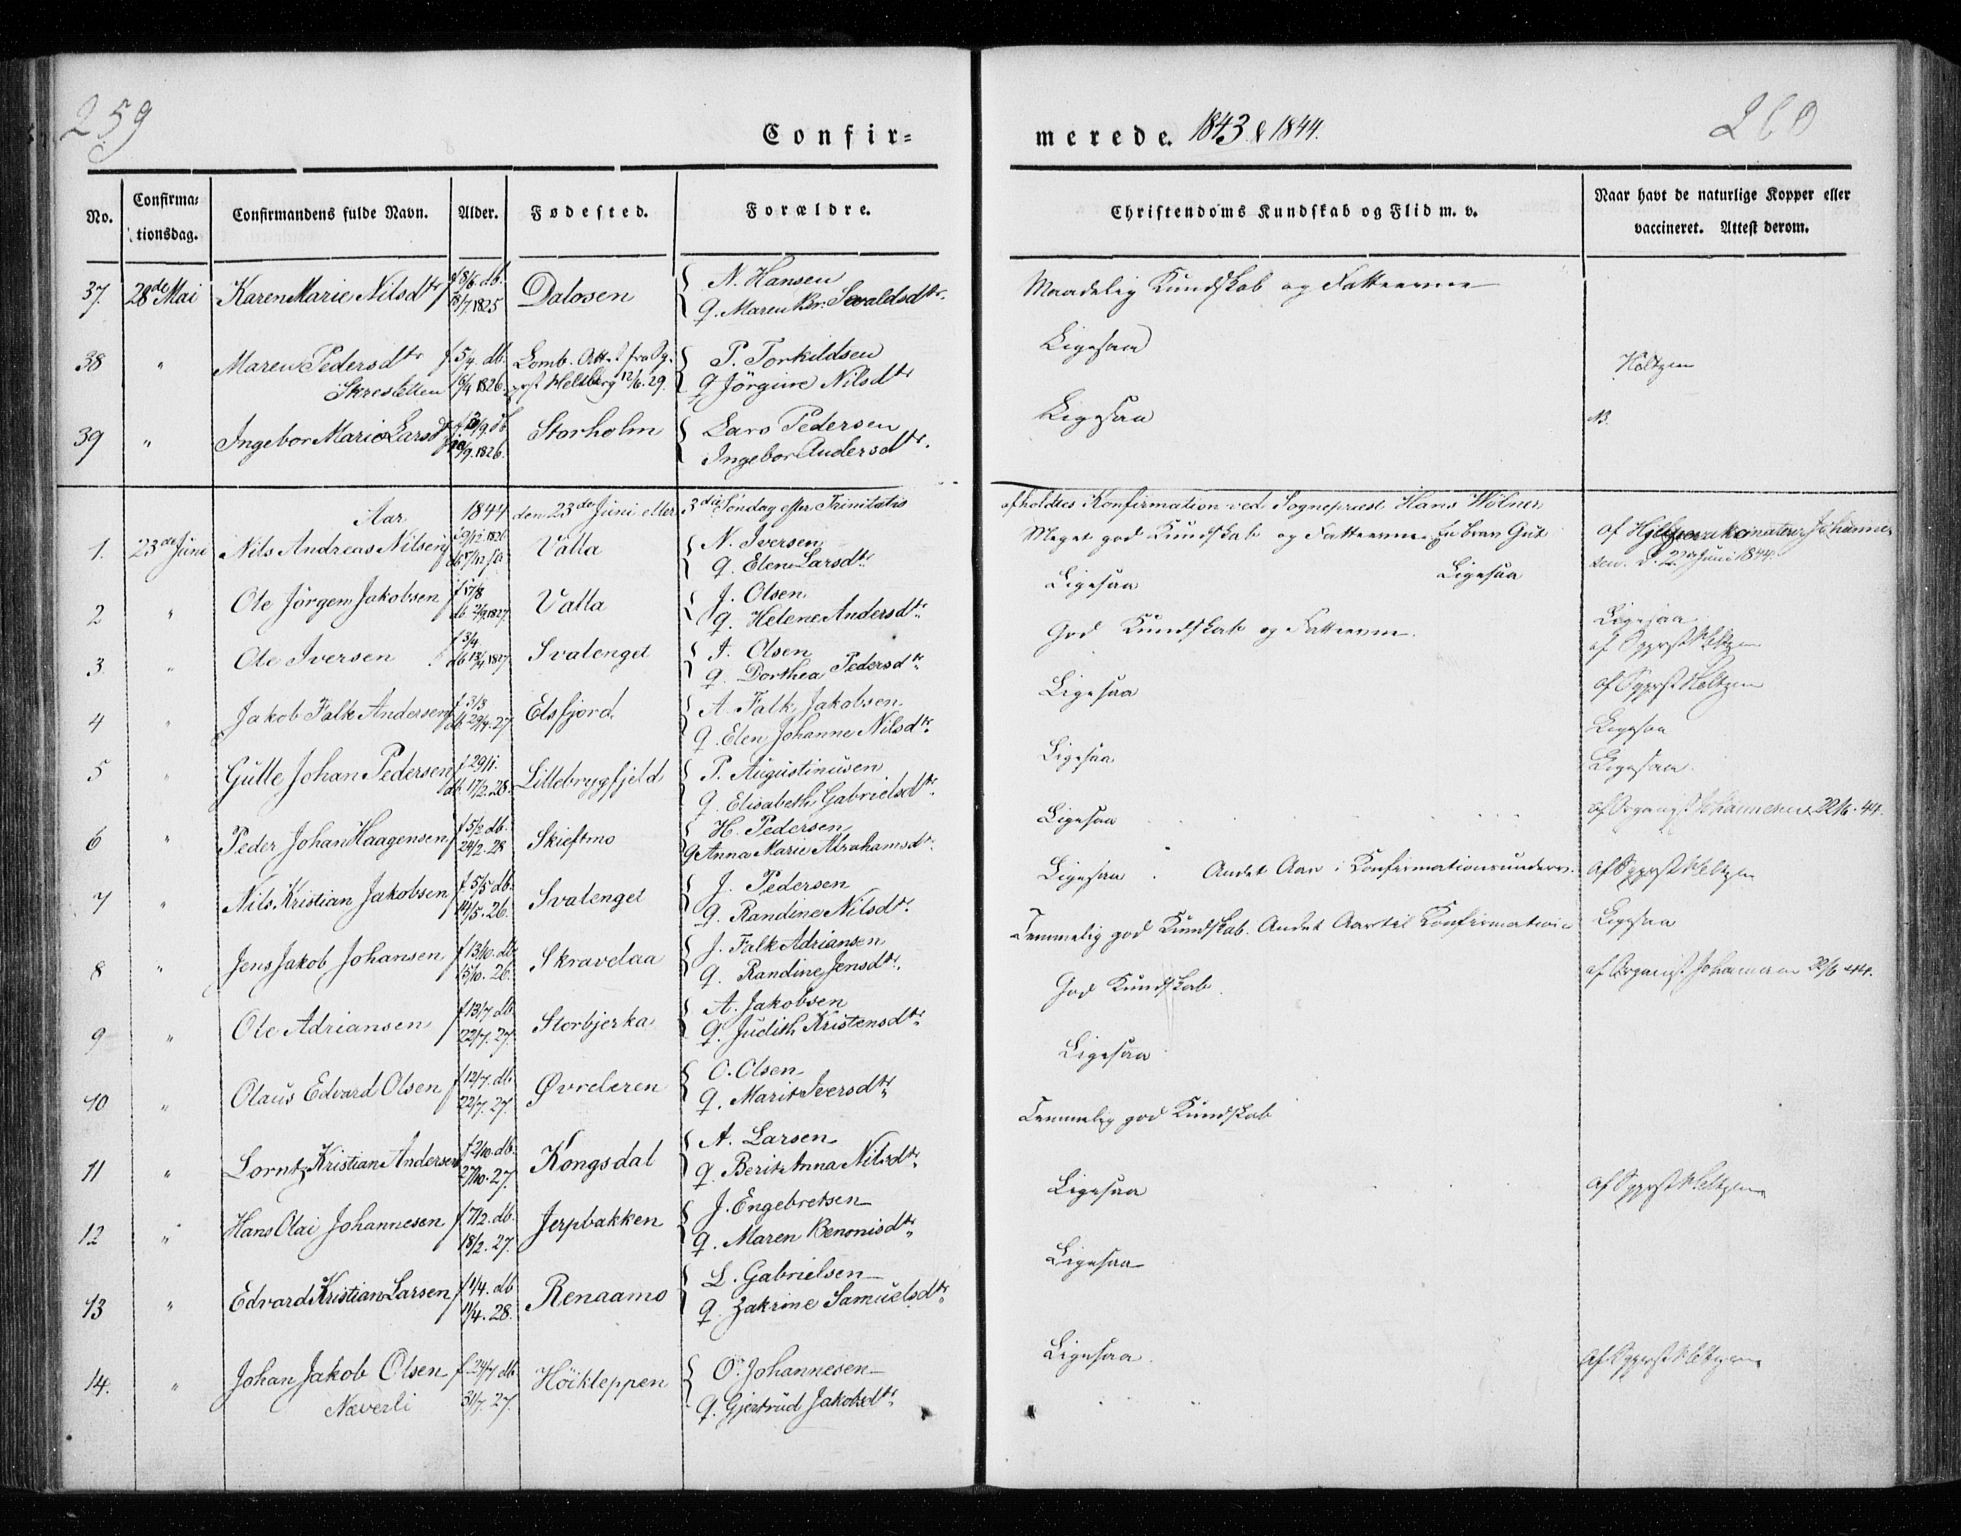 259
Confir=
No.
Confirma=
tionsdag.
Confirmandens fulde Navn.
Alder.
Fødested.
Forældre.
37. 28de Mai Karen Marie Nilsdtr f 8/6 db. Dalosen N. Hansen
18/7 1825 q. Maren Br. Sevaldsdtr.
38 " Maren Pedersdtr f 5/4 db. Lomb. Att. fra Sg. P. Torkildsen
Skresletten 16/4 1826. prst Heltberg 12/6. 29. q Jörgine Nilsdtr
39 " Ingebor Marie Larsd /9 db Storholm Lars Pedersen
/9. 1826. Ingebor Andersdtr.
Aar 1844 den 23de Juni eller 3die Søndag efter Trinitatis
1. 23de Juni Nils Andreas Nilsen Valla N. Iversen
q. Elen Larsdtr
2 " Ole Jörgen Jakobsen f 17/8 Valla J. Olsen
db. 2/9 1827. q. Helene Andersdtr.
3. " Ole Iversen f 3/4 Svalenget I. Olsen
db 13/4 1827 q. Dorthea Pedersdtr.
4 " Jakob Falk Andersen f. 3/3 Elsfjord. A. Falk Jakobsen
db. 29/4. 27. q. Elen Johanne Nilsdtr.
5 " Gulle Johan Pedersen f 29/1. Lillebrygfjeld P. Augustinusen
db. 17/2. 28. q. Elisabeth Gabrielsdtr.
6 " Peder Johan Haagensen f 5/2 db. Skieftmo H. Pedersen
24/2. 28 q Anna Marie Abrahamsdtr.
7 " Nils Kristian Jakobsen f. 5/5 db. Svalenget J. Pedersen
14/5. 26. q. Randine Nilsdtr.
8 " Jens Jakob Johansen f 13/10. db Skravelaa J. Falk Adriansen
15/10. 26. q. Randine Jensdtr.
9 " Ole Adriansen f 13/7 db Storbjerka A. Jakobsen
22/7. 27. q. Judith Kristensdtr.
10 " Olaus Edvard Olsen f 12/7. db Øvreleren O. Olsen
22/7. 27. q. Marit Iversdtr.
11 " Lorntz Kristian Andersen f 2/10. db. Kongsdal A. Larsen
27/10. 27. q. Berit Anna Nilsdtr.
12 " Hans Olai Johannesen f 7/2. db. Jerpbakken J. Engebretsen
18/2. 27. q. Maren Benonisdtr.
13 " Edvard Kristian Larsen f 1/4. db Renaamo L. Gabrielsen
11/4. 28. q. Zakrine Samuelsdtr.
14. " Johan Jakob Olsen f. 24/7 db Höikleppen O. Johannesen
Næverli 31/7. 27. q. Gjertrud Jakobsdtr.
merede. 1843 & 1844.
260
Christendoms Kundskab og Flid m. v.
Naar havt de naturlige Kopper eller
vaccineret. Attest derom.
Maadelig Kundskab og Fatteevne
Ligesaa
Holtzen
Ligesaa
afholdtes Konfirmation ved Sogneprest Hans Wölner
Meget god Kundskab og Fatteevne. En brav Gut
Johanne
sen. d. 22de Juni 1844.
Ligesaa Ligesaa
Ligesaa
God Kundskab og Fatteevne.
af Sgprst Heltzen
Ligesaa af Sgprst Heltzen
Ligesaa
Ligesaa Ligesaa.
Ligesaa af Organist Johannesen 22/6. 44.
Ligesaa. Andet Aar i Konfirmationsunderv. af Sgprst Heltzen
Temmelig god Kundskab. Andet Aar til Konfirmation Ligesaa
God Kundskab. af Organist Johannesen 22/6 44.
Ligesaa
Temmelig god Kundskab
Ligesaa af Sgprst Heltzen
Ligesaa
Ligesaa. af Sgprst Heltzen